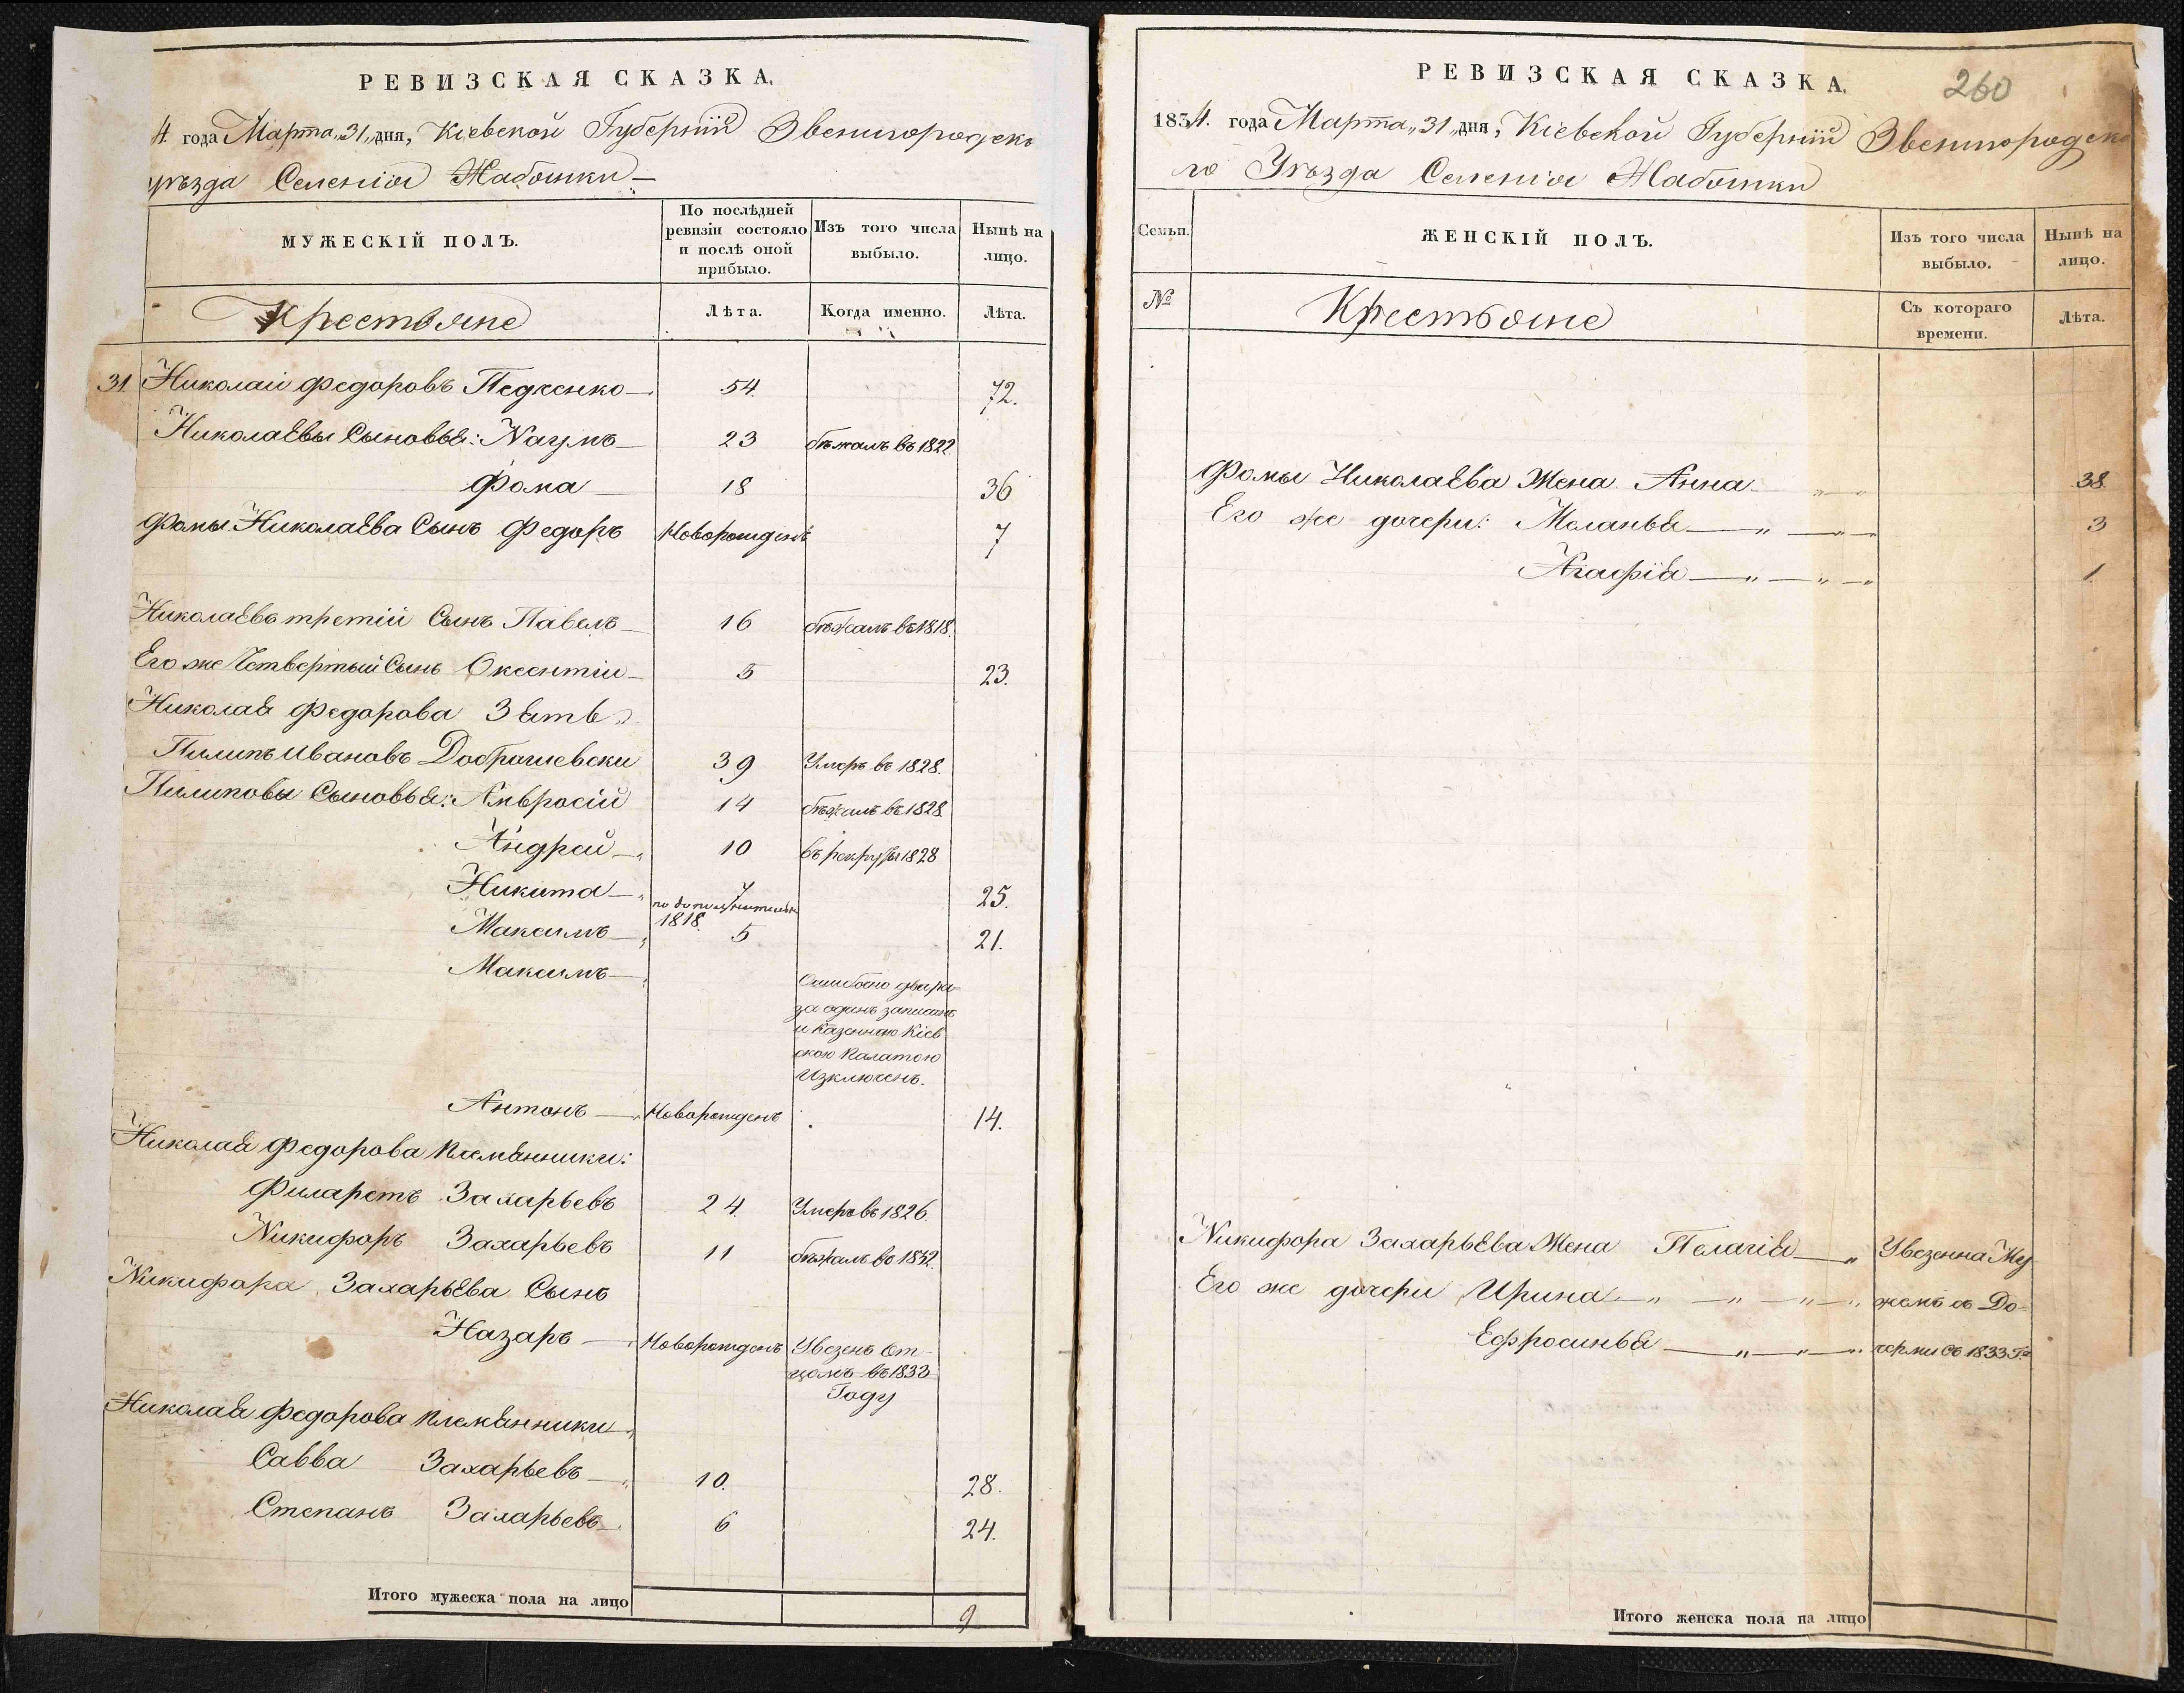 РЕВИЗСКАЯ СКАЗКА.
4. года Марта „31„ дня, Кіевской Губерніи Звенигородско
уѣзда Селенія Жабошки
МУЖЕСКІЙ ПОЛЪ.
По послѣдней ревизіи состояло и послѣ оной прибыло.
Изъ того числа выбыло.
Нынѣ на лицо.
Крестьяне
Лѣта.
Когда именно.
Лѣта.
31. Николай Федоровъ Педченко 54. 72.
Николаевы Сыновья: Наумъ 23 бѣжалъ въ 1822
Фома 18 36
Фомы Николаева Сынъ Федоръ Новорожденъ 7
Николаевъ третій Сынъ Павелъ 16 бѣжалъ въ 1818.
Его же Четвертый Сынъ Оксентій 5 23.
Николая Федорова Зять
Пилипъ Ивановъ 39 Умеръ въ 1828.
Пилиповы Сыновья: Амвросій 14 бѣжалъ въ 1828
Андрей 10 въ рекруты 1828
Никита 7 25.
по дополнительн
1818.
Максимъ 5 21.
Максимъ
Ошибочно два ра
за одинъ записанъ
и Казенною Кіев
скою Палатою
Изключенъ.
Антонъ Новорожденъ 14.
Николая Федорова племянники:
Филаретъ Захарьевъ 24. Умеръ въ 1826.
Никифоръ Захарьевъ 11 бѣжалъ во 1832.
Никифора Захарьева Сынъ
Назаръ Новорожденъ Увезенъ От-
цомъ въ 1833
Году
Николая Федорова племянники
Савва Захарьевъ 10. 28.
Степанъ Захарьевъ 6 24.
Итого мужеска пола на лицо 9
РЕВИЗСКАЯ СКАЗКА.
260
1834. года Марта „31„ дня, Кіевской Губерніи Звенигородско
го Уѣзда Селенія Жабошки
Семьи.
ЖЕНСКІЙ ПОЛЪ.
Изъ того числа выбыло.
Нынѣ на лицо.
№
Крестьяне
Съ котораго времени.
Лѣта.
Фомы Николаева Жена Анна 38.
Его же дочери: Меланья 3
Агафія 1
Никифора Захарьева Жена Пелагія Увезенна Му
Его же дочери Ирина жемъ съ До-
Ефросинья черми съ 1833 Го
Итого женска пола на лицо